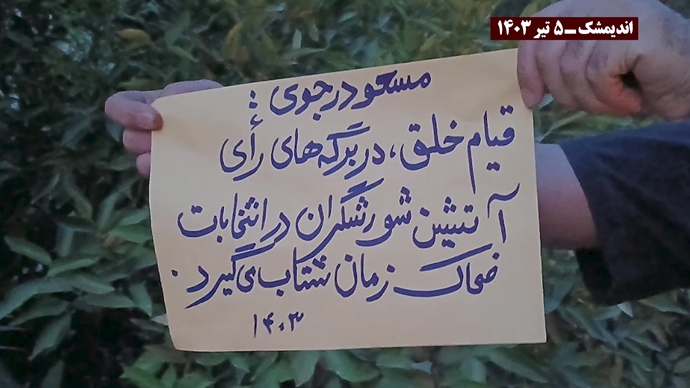 اندیمشک ــ ۵ تیر ۱۴۰۳
مسعود رجوی :
قیام خلق، در برگه‌های رأی
آتشین شورشگران در انتخابات
ضحاک زمان شتاب می‌گیرد.
۱۴۰۳